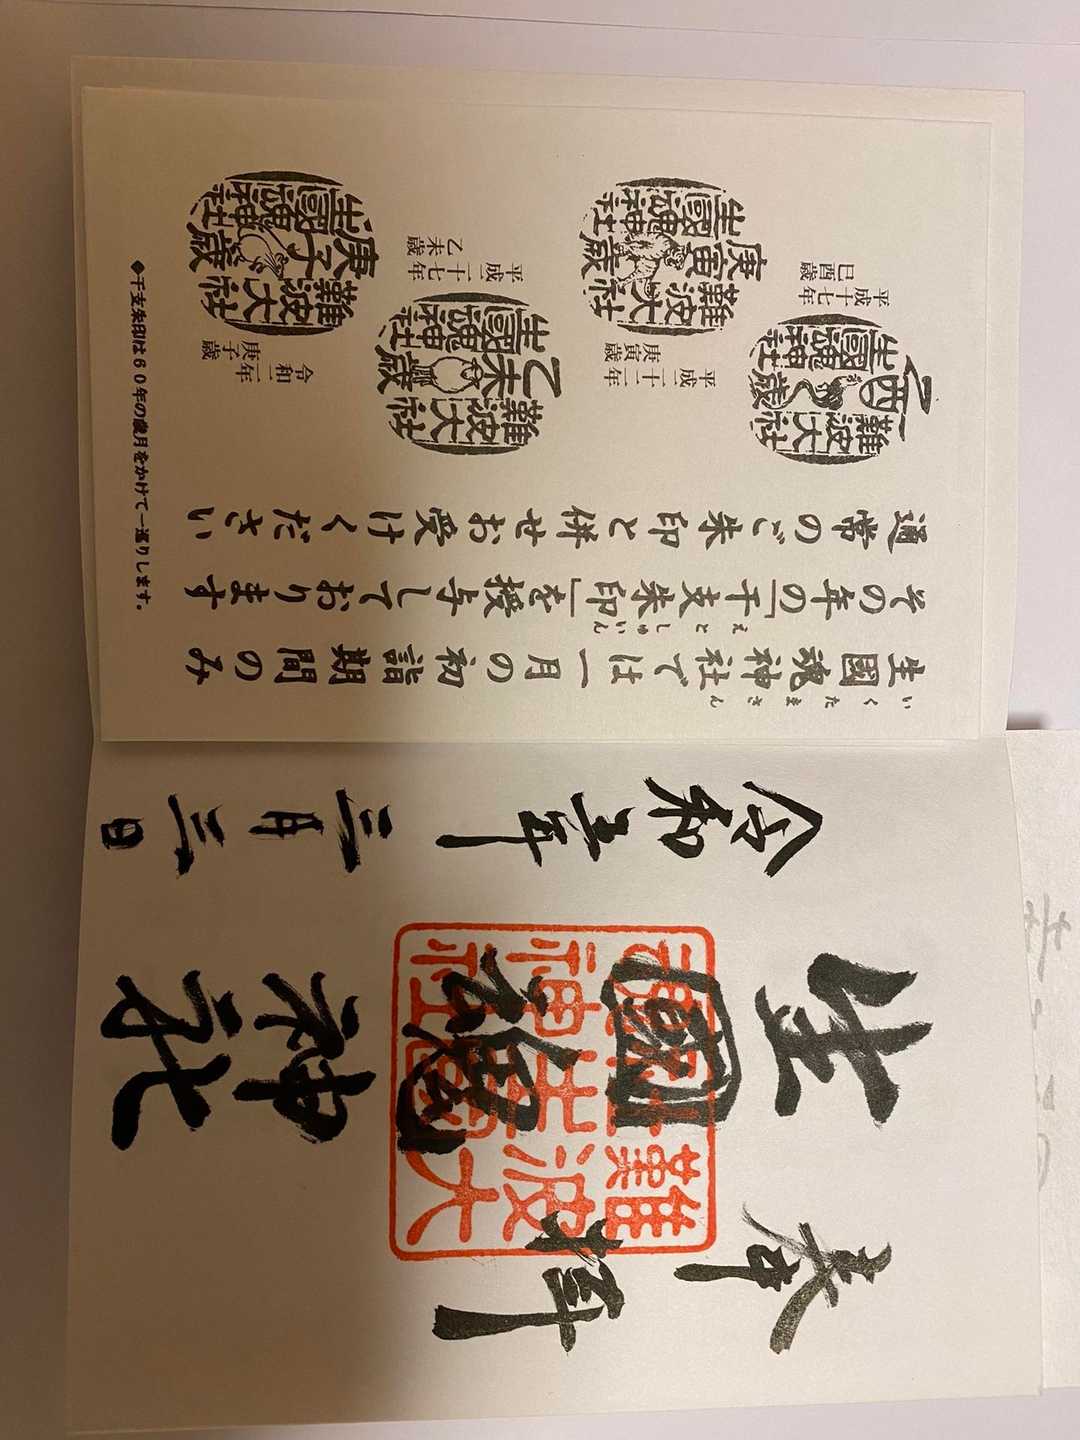 奉拝
難波大
社生國
魂神社
生國魂神社
令和三年三月三日
いくたまさん
生國魂神社では一月の初詣期間のみ
えとしゅいん
その年の「干支朱印」を授与しております
通常のご朱印と併せお受けください
難波大社
乙酉歳
生國魂神社
平成十七年
己酉歳
平成二十二年
庚寅歳
難波大社
庚寅歳
生國魂神社
難波大社
乙未歳
生國魂神社
平成二十七年
乙未歳
令和二年
庚子歳
難波大社
庚子歳
生國魂神社
◆干支朱印は60年の歳月をかけて一巡りします。